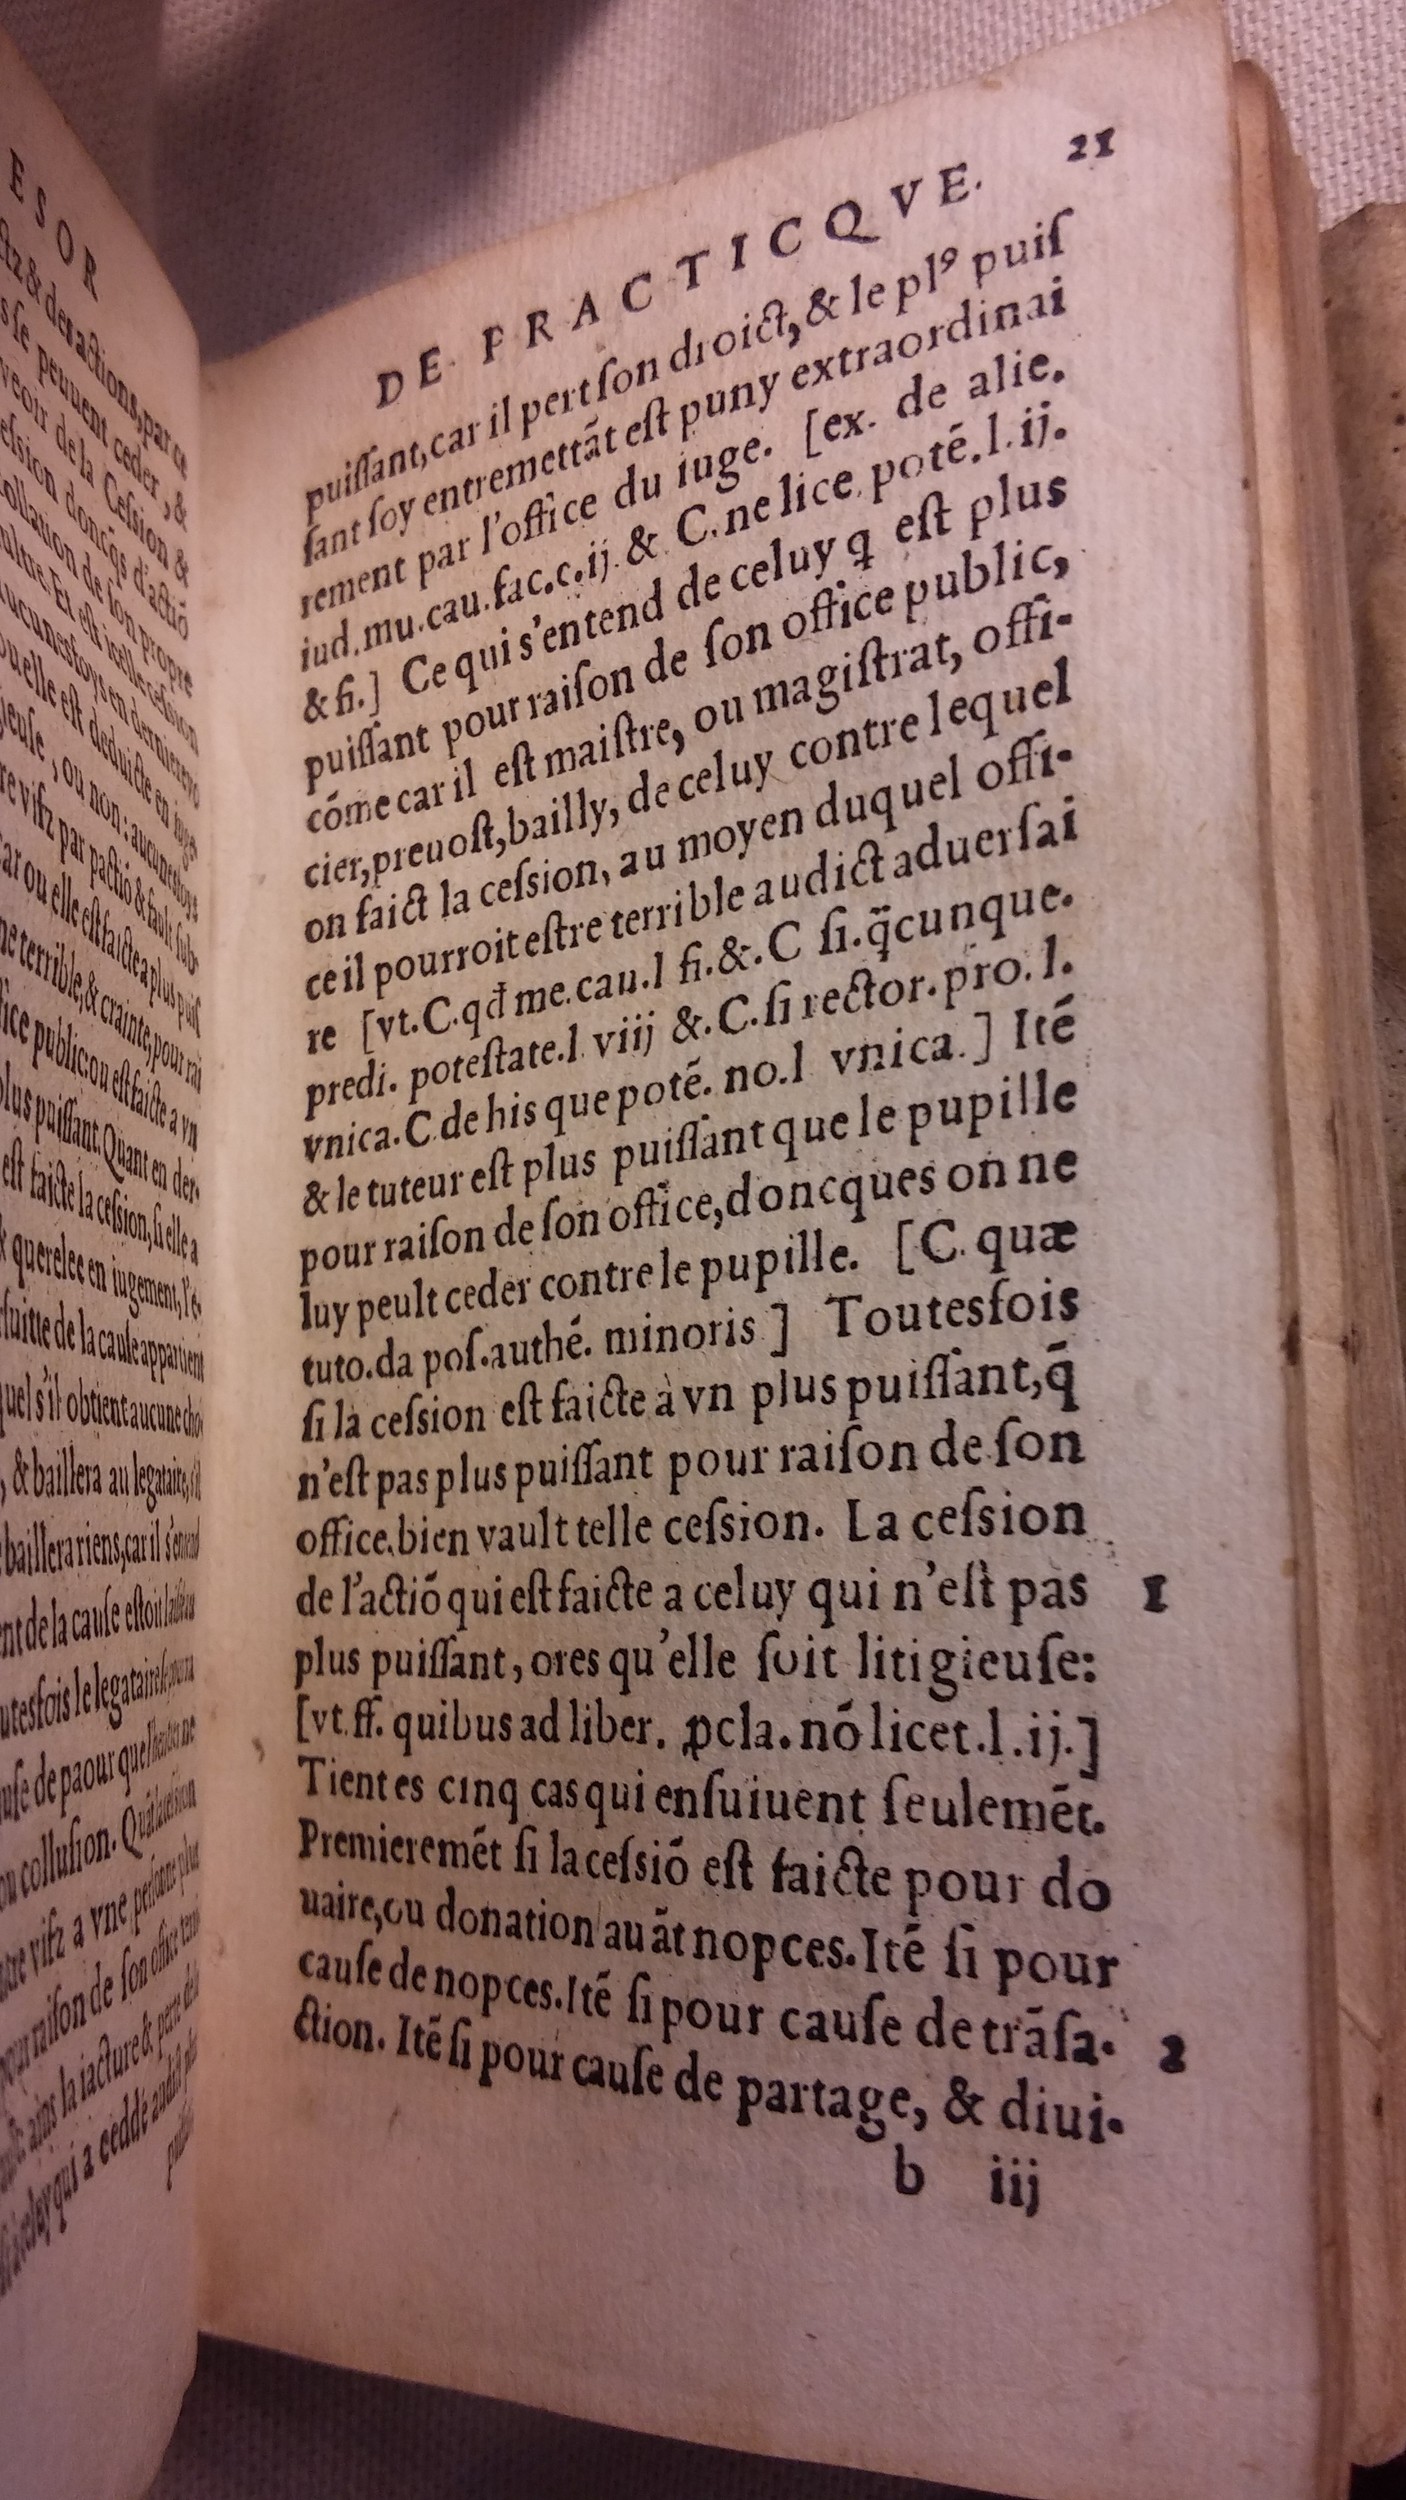 ESOR
& des actions, par ce
se peuuent ceder, &
veoir de la Cesſion &
donc q̃s d'actiō
Collation de ſon propre
Et eſt icelle ceſsion
aucunesfoys en derniere vo
elle eſt deduicte en iuge
ou non: aucunesfoys
re vifz par pactiō & fault ſub
ar ou elle eſt faicte a plus puiſ
ne terrible, & crainte, pour rai
fice public: ou eſt faicte a vn
plus puiſſant. Quant en der-
eſt faicte la ceſsion, ſi elle a
querelee en iugement, l'e-
ſuitte de la cauſe appartient
quel s'il obtient aucune cho
, & baillera au legataire,
baillera riens, car il s'entend
ent de la cauſe eſtoit
utesfois le legataire
uſe de paour que
ou colluſion.
tre vifz a vne perſonne plus
pour raiſon de ſon office
ains la iacture & perte de
celuy qui a cedde audit plus
DE PRACTICQVE. 21
puiſſant, car il pert ſon droict, & le plꝰ puiſ
ſant ſoy entremettãt eſt puny extraordinai
rement par l'office du iuge. [ex. de alie.
iud. mu. cau. fac. c. ij. & C. ne lice. potẽ. l. ij.
& fi.] Ce qui s'entend de celuy q̨ eſt plus
puiſſant pour raiſon de ſon office public,
cōme car il eſt maiſtre, ou magiſtrat, offi-
cier, preuoſt, bailly, de celuy contre lequel
on faict la ceſsion, au moyen duquel offi-
ce il pourroit eſtre terrible audict aduerſai
re [vt. C. qđ me. cau. l fi. &. C ſi. q̃cunque.
predi. poteſtate. l. viij &. C. ſi rector. pro. l.
vnica. C. de his que potẽ. no. l vnica.] Itẽ
& le tuteur eſt plus puiſſant que le pupille
pour raiſon de ſon office, doncques on ne
luy peult ceder contre le pupille. [C. quæ
tuto. da poſ. authẽ. minoris] Toutesfois
ſi la ceſsion eſt faicte à vn plus puiſſant, q̃
n'eſt pas plus puiſſant pour raiſon de ſon
office. bien vault telle ceſsion. La ceſsion
de l'actiō qui eſt faicte a celuy qui n'eſt pas 1
plus puiſſant, ores qu'elle ſoit litigieuſe:
[vt. ff. quibus ad liber. ꝓcla. nō licet. l. ij.]
Tient es cinq cas qui enſuiuent ſeulemẽt.
Premieremẽt ſi la ceſsiō eſt faicte pour do
uaire, ou donation auãt nopces. Itẽ ſi pour
cauſe de nopces. Itẽ ſi pour cauſe de trãſa- 2
ction. Itẽ ſi pour cauſe de partage, & diui-
b iij